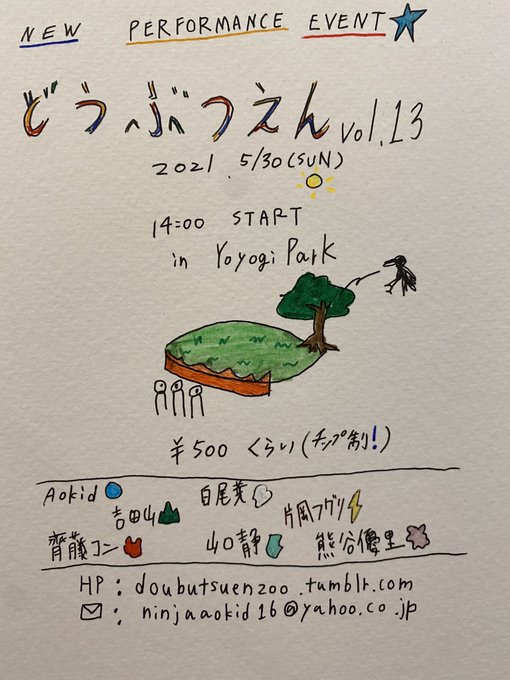 NEW PERFORMANCE EVENT
どうぶつえん vol.13
2021. 5/30(SUN)
14:00 START
in Yoyogi Park
¥500 くらい(チップ制!)
Aokid 白尾芽
吉田山 片岡フグリ
齊藤コン 山口静 熊谷優里
HP: doubutsuenzoo.tumblr.com
✉: ninjaaokid16@yahoo.co.jp